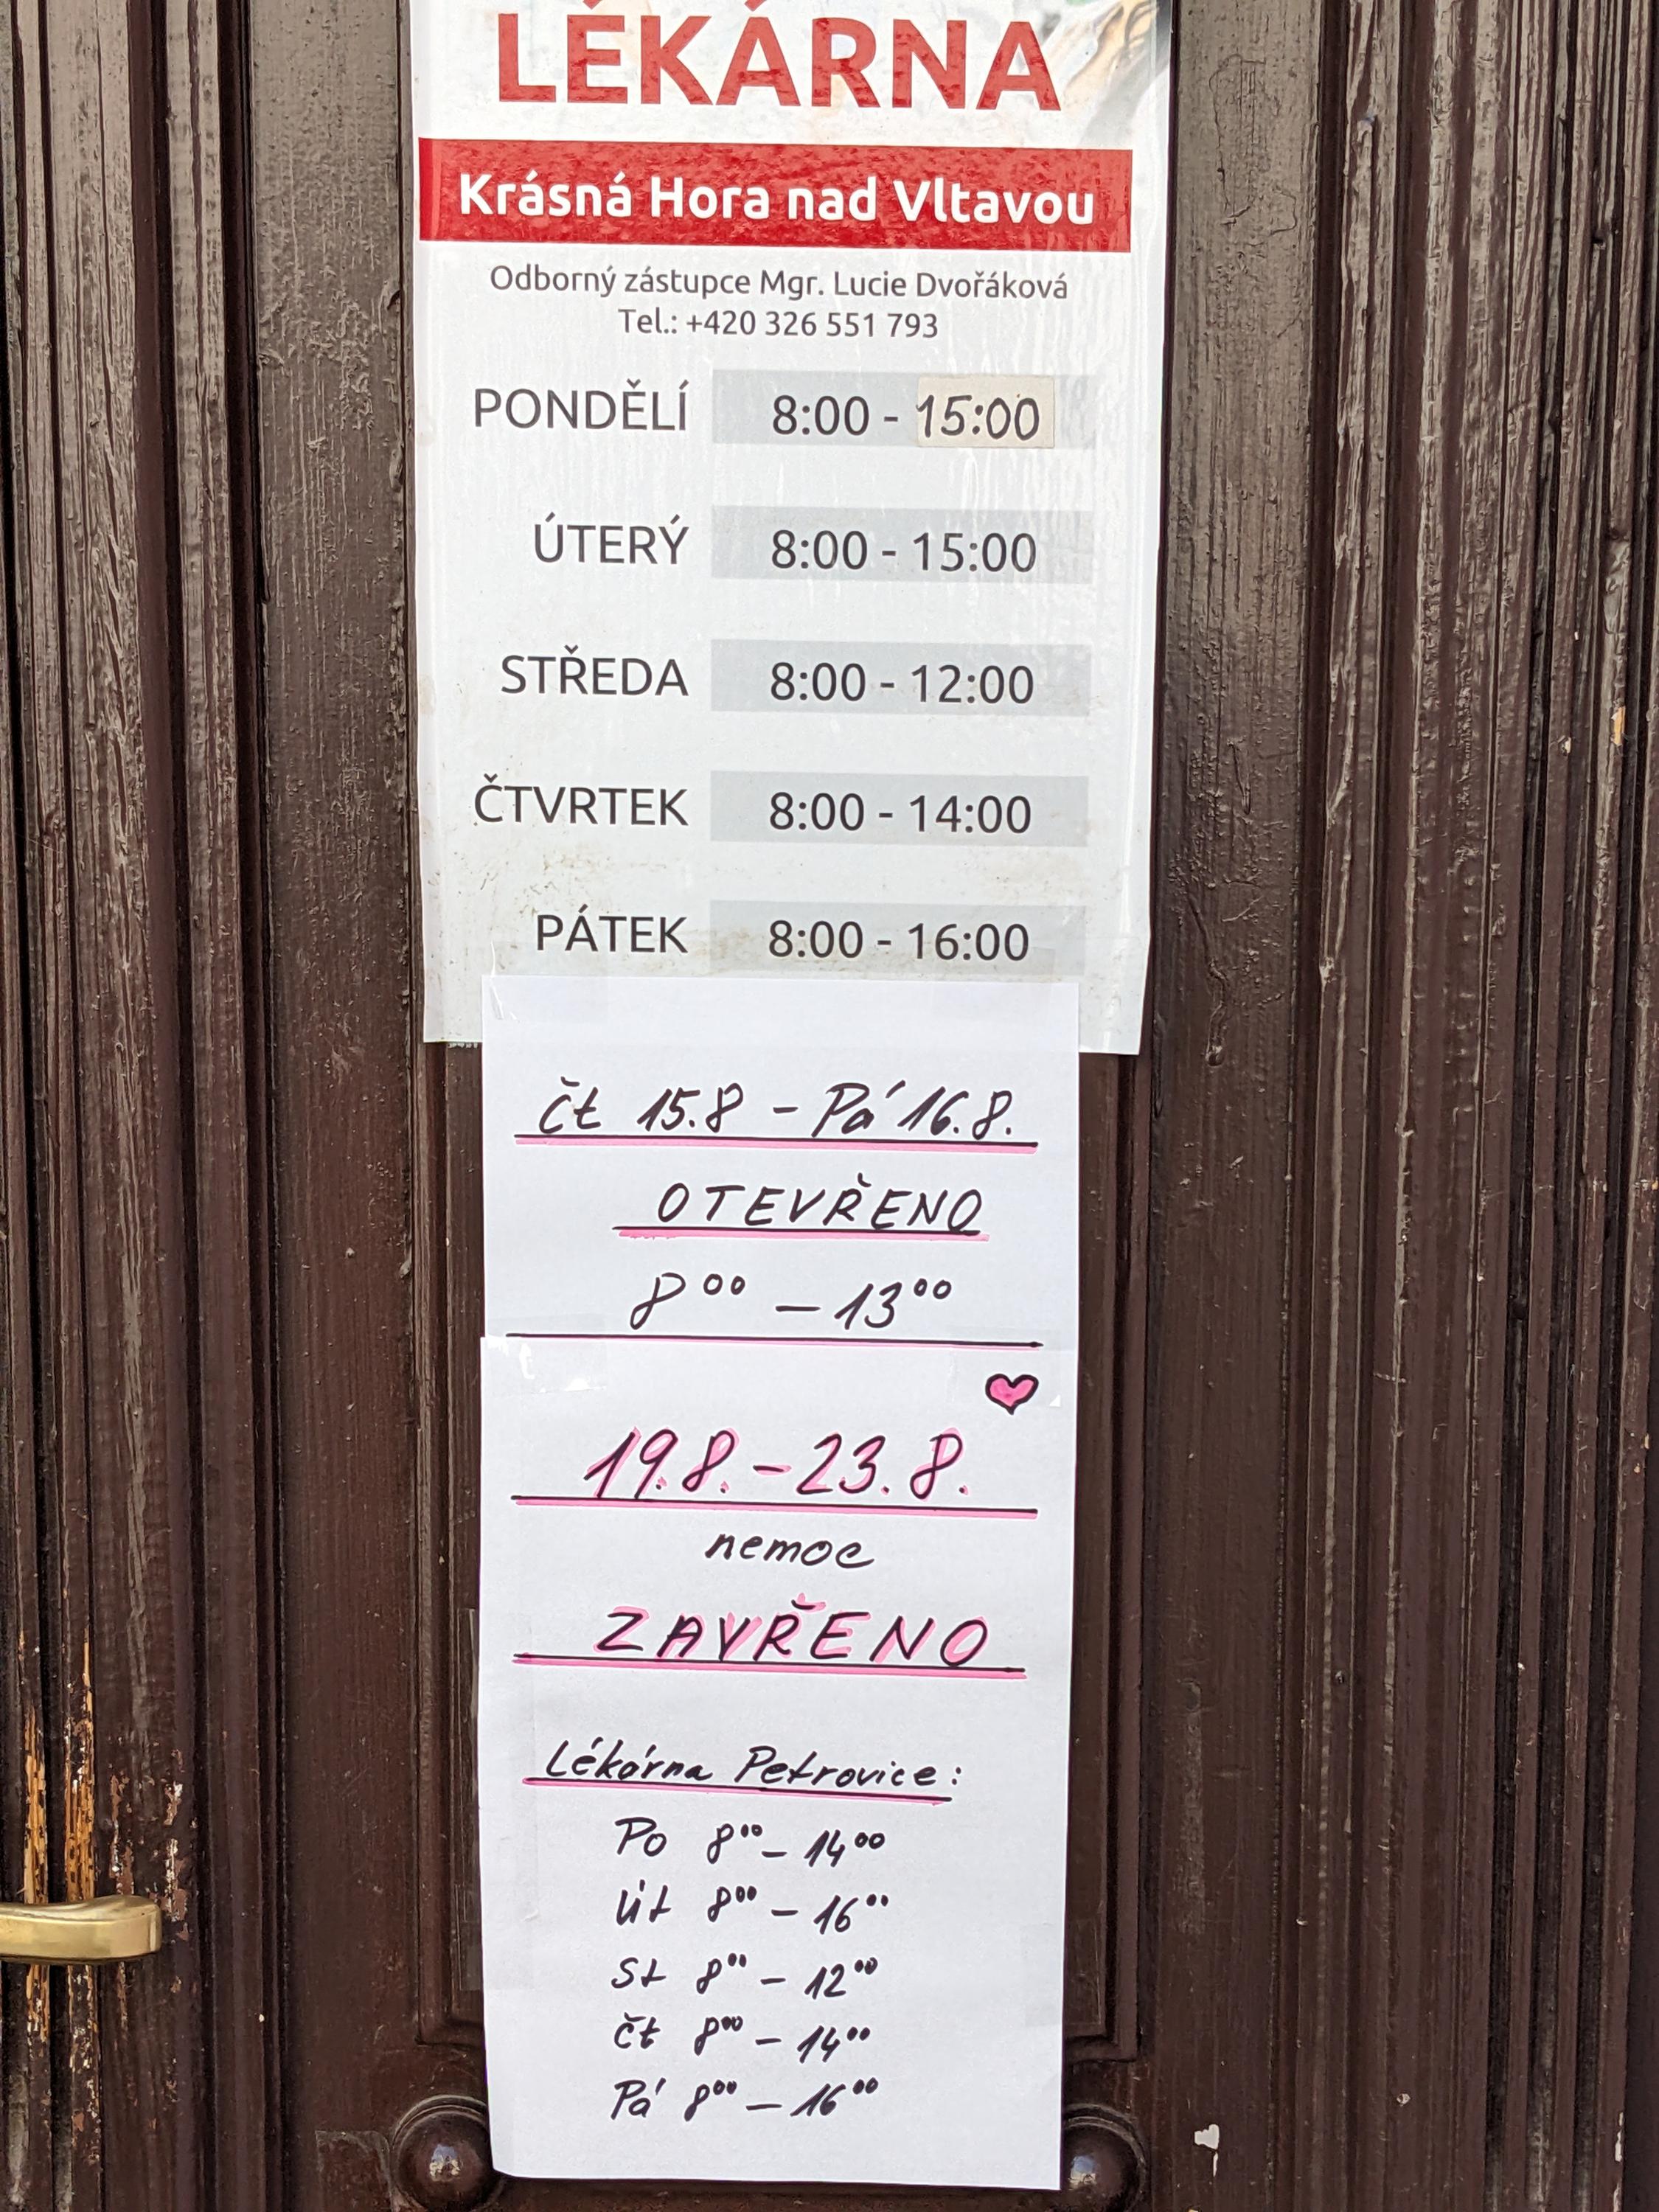 LÉKÁRNA
Krásná Hora nad Vltavou
Odborný zástupce Mgr. Lucie Dvořáková
Tel.: +420 326 551 793
PONDĚLÍ 8:00 - 15:00
ÚTERÝ 8:00 - 15:00
STŘEDA 8:00 - 12:00
ČTVRTEK 8:00 - 14:00
PÁTEK 8:00 - 16:00
čt 15.8 - Pá 16.8.
OTEVŘENO
8⁰⁰ - 13⁰⁰
19.8. - 23.8.
nemoc
ZAVŘENO
Lékárna Petrovice:
Po 8⁰⁰ - 14⁰⁰
Út 8⁰⁰ - 16⁰⁰
St 8⁰⁰ - 12⁰⁰
čt 8⁰⁰ - 14⁰⁰
Pá 8⁰⁰ - 16⁰⁰